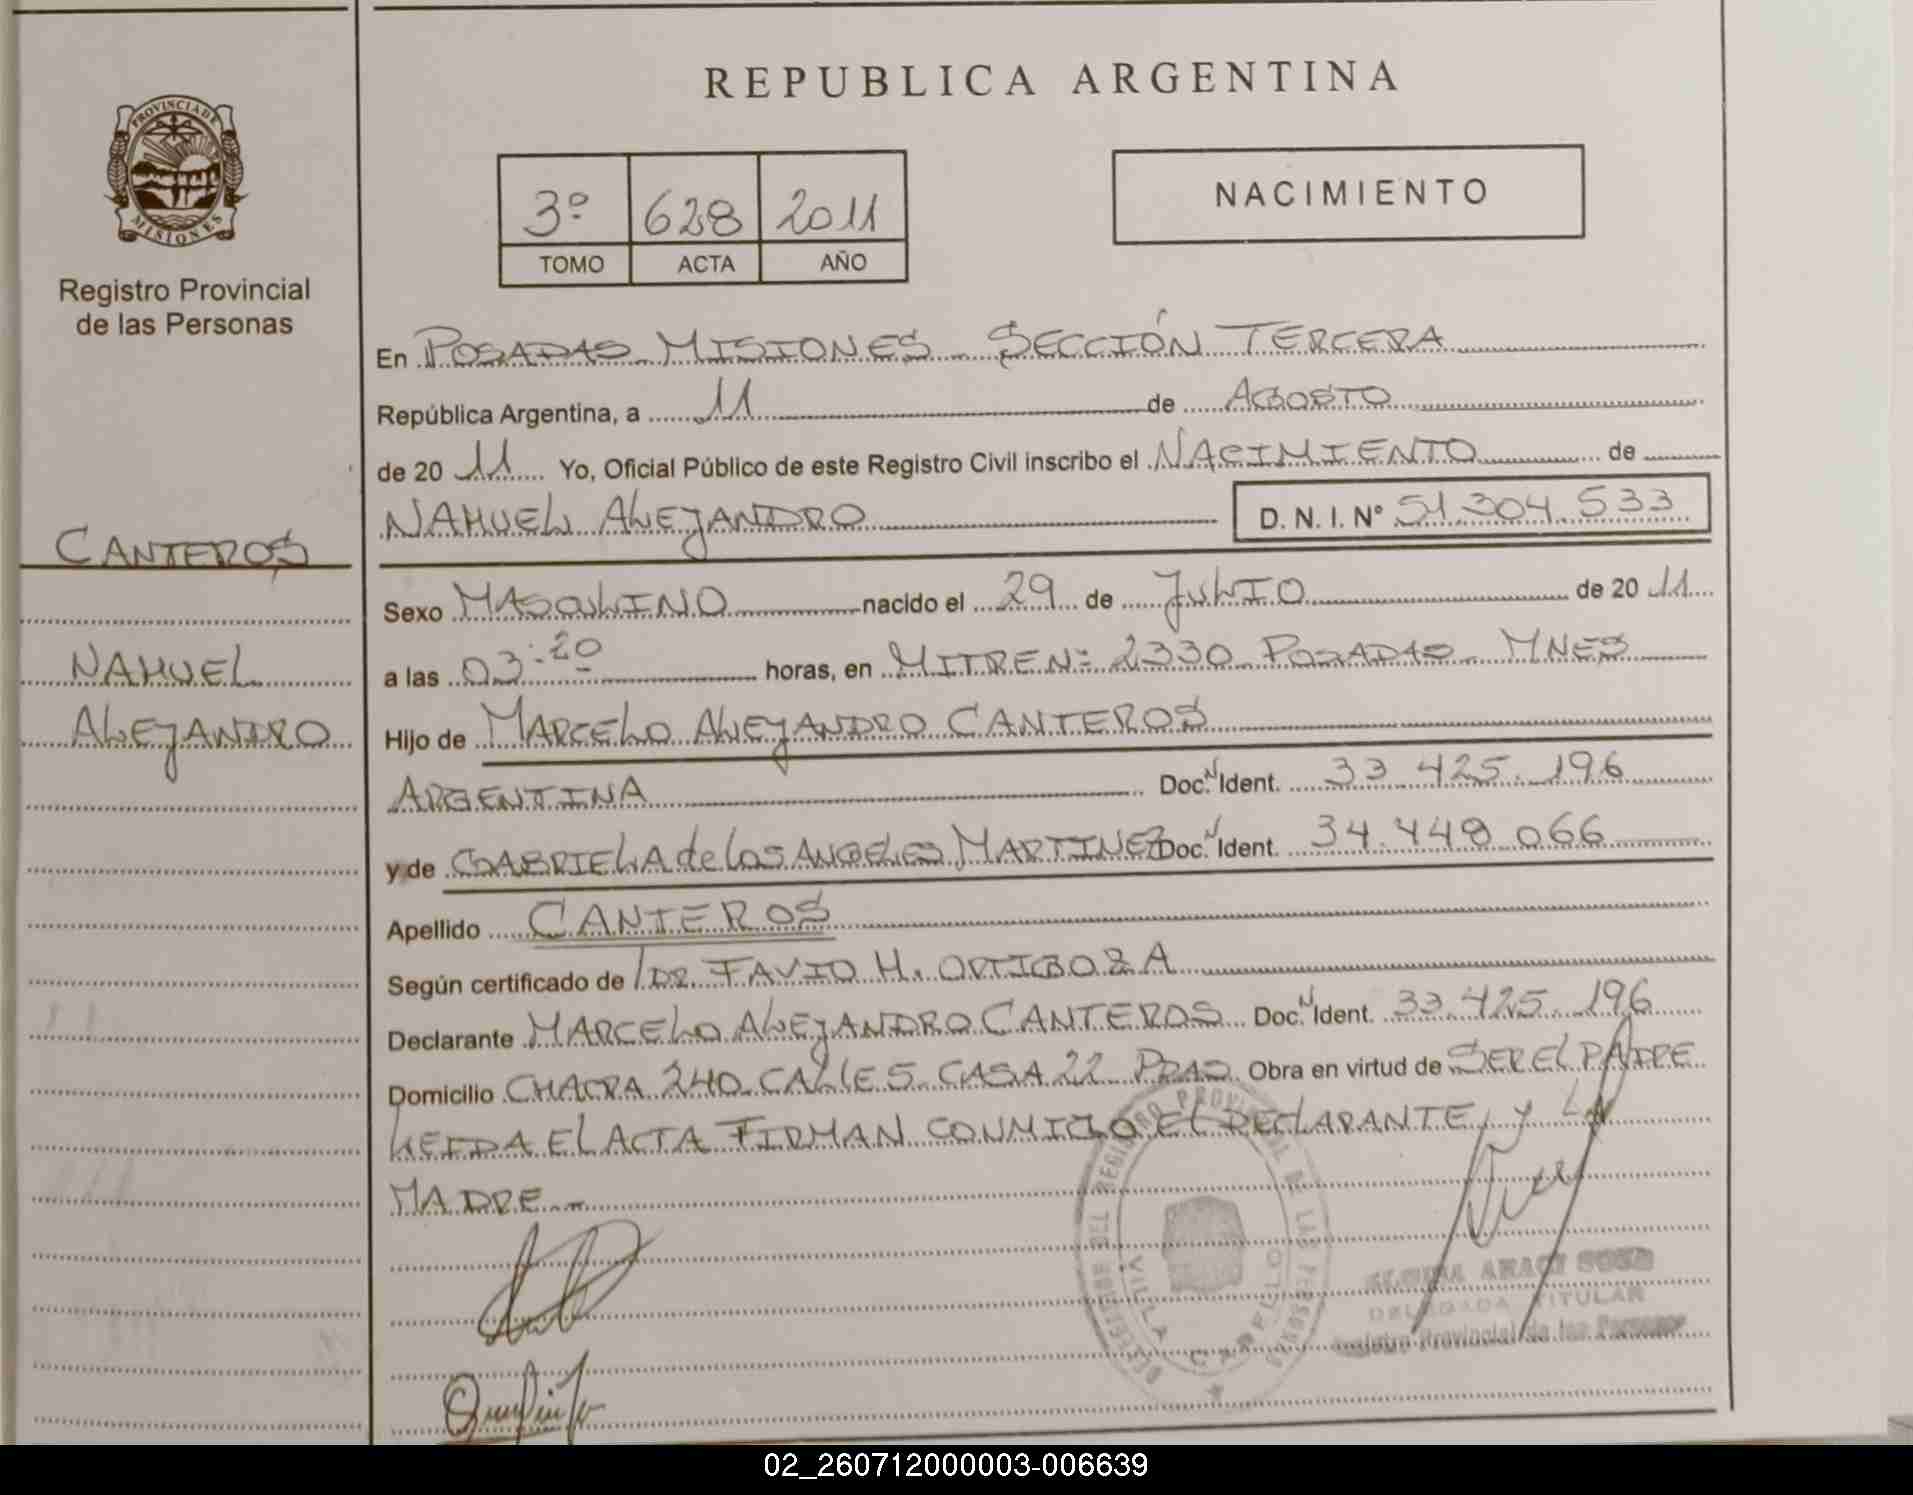 REPUBLICA ARGENTINA
PROVINCIA DE
MISIONES
Registro Provincial
de las Personas
3º 628 2011
TOMO ACTA AÑO
NACIMIENTO
En POSADAS MISIONES SECCIÓN TERCERA
República Argentina, a 11 de AGOSTO
de 20 11 Yo, Oficial Público de este Registro Civil inscribo el NACIMIENTO de
NAHUEL ALEJANDRO D. N. I. Nº 51.304.533
CANTEROS
Sexo MASCULINO nacido el 29 de JULIO de 20 11
NAHUEL
a las 03:20 horas, en MITRE Nº 2330 POSADAS MNES
ALEJANDRO
Hijo de MARCELO ALEJANDRO CANTEROS
ARGENTINA Doc. N Ident. 33.425.196
y de GABRIELA de los ANGELES MARTINEZ Doc. N Ident. 34.448.066
Apellido CANTEROS
Según certificado de DR. FAVIO H. ORTIGOZA
Declarante MARCELO ALEJANDRO CANTEROS Doc. N Ident. 33.425.196
Domicilio CHACRA 240 CALLE 5 CASA 22 PDAS Obra en virtud de SER EL PADRE
LEIDA EL ACTA FIRMAN CONMIGO EL DECLARANTE, Y LA
MADRE.-
DEL REGISTRO PROVINCIAL DE LAS PERSONAS
VILLA CABELLO
ARACI
DELEGADA TITULAR
Registro Provincial de las Personas
02_260712000003-006639